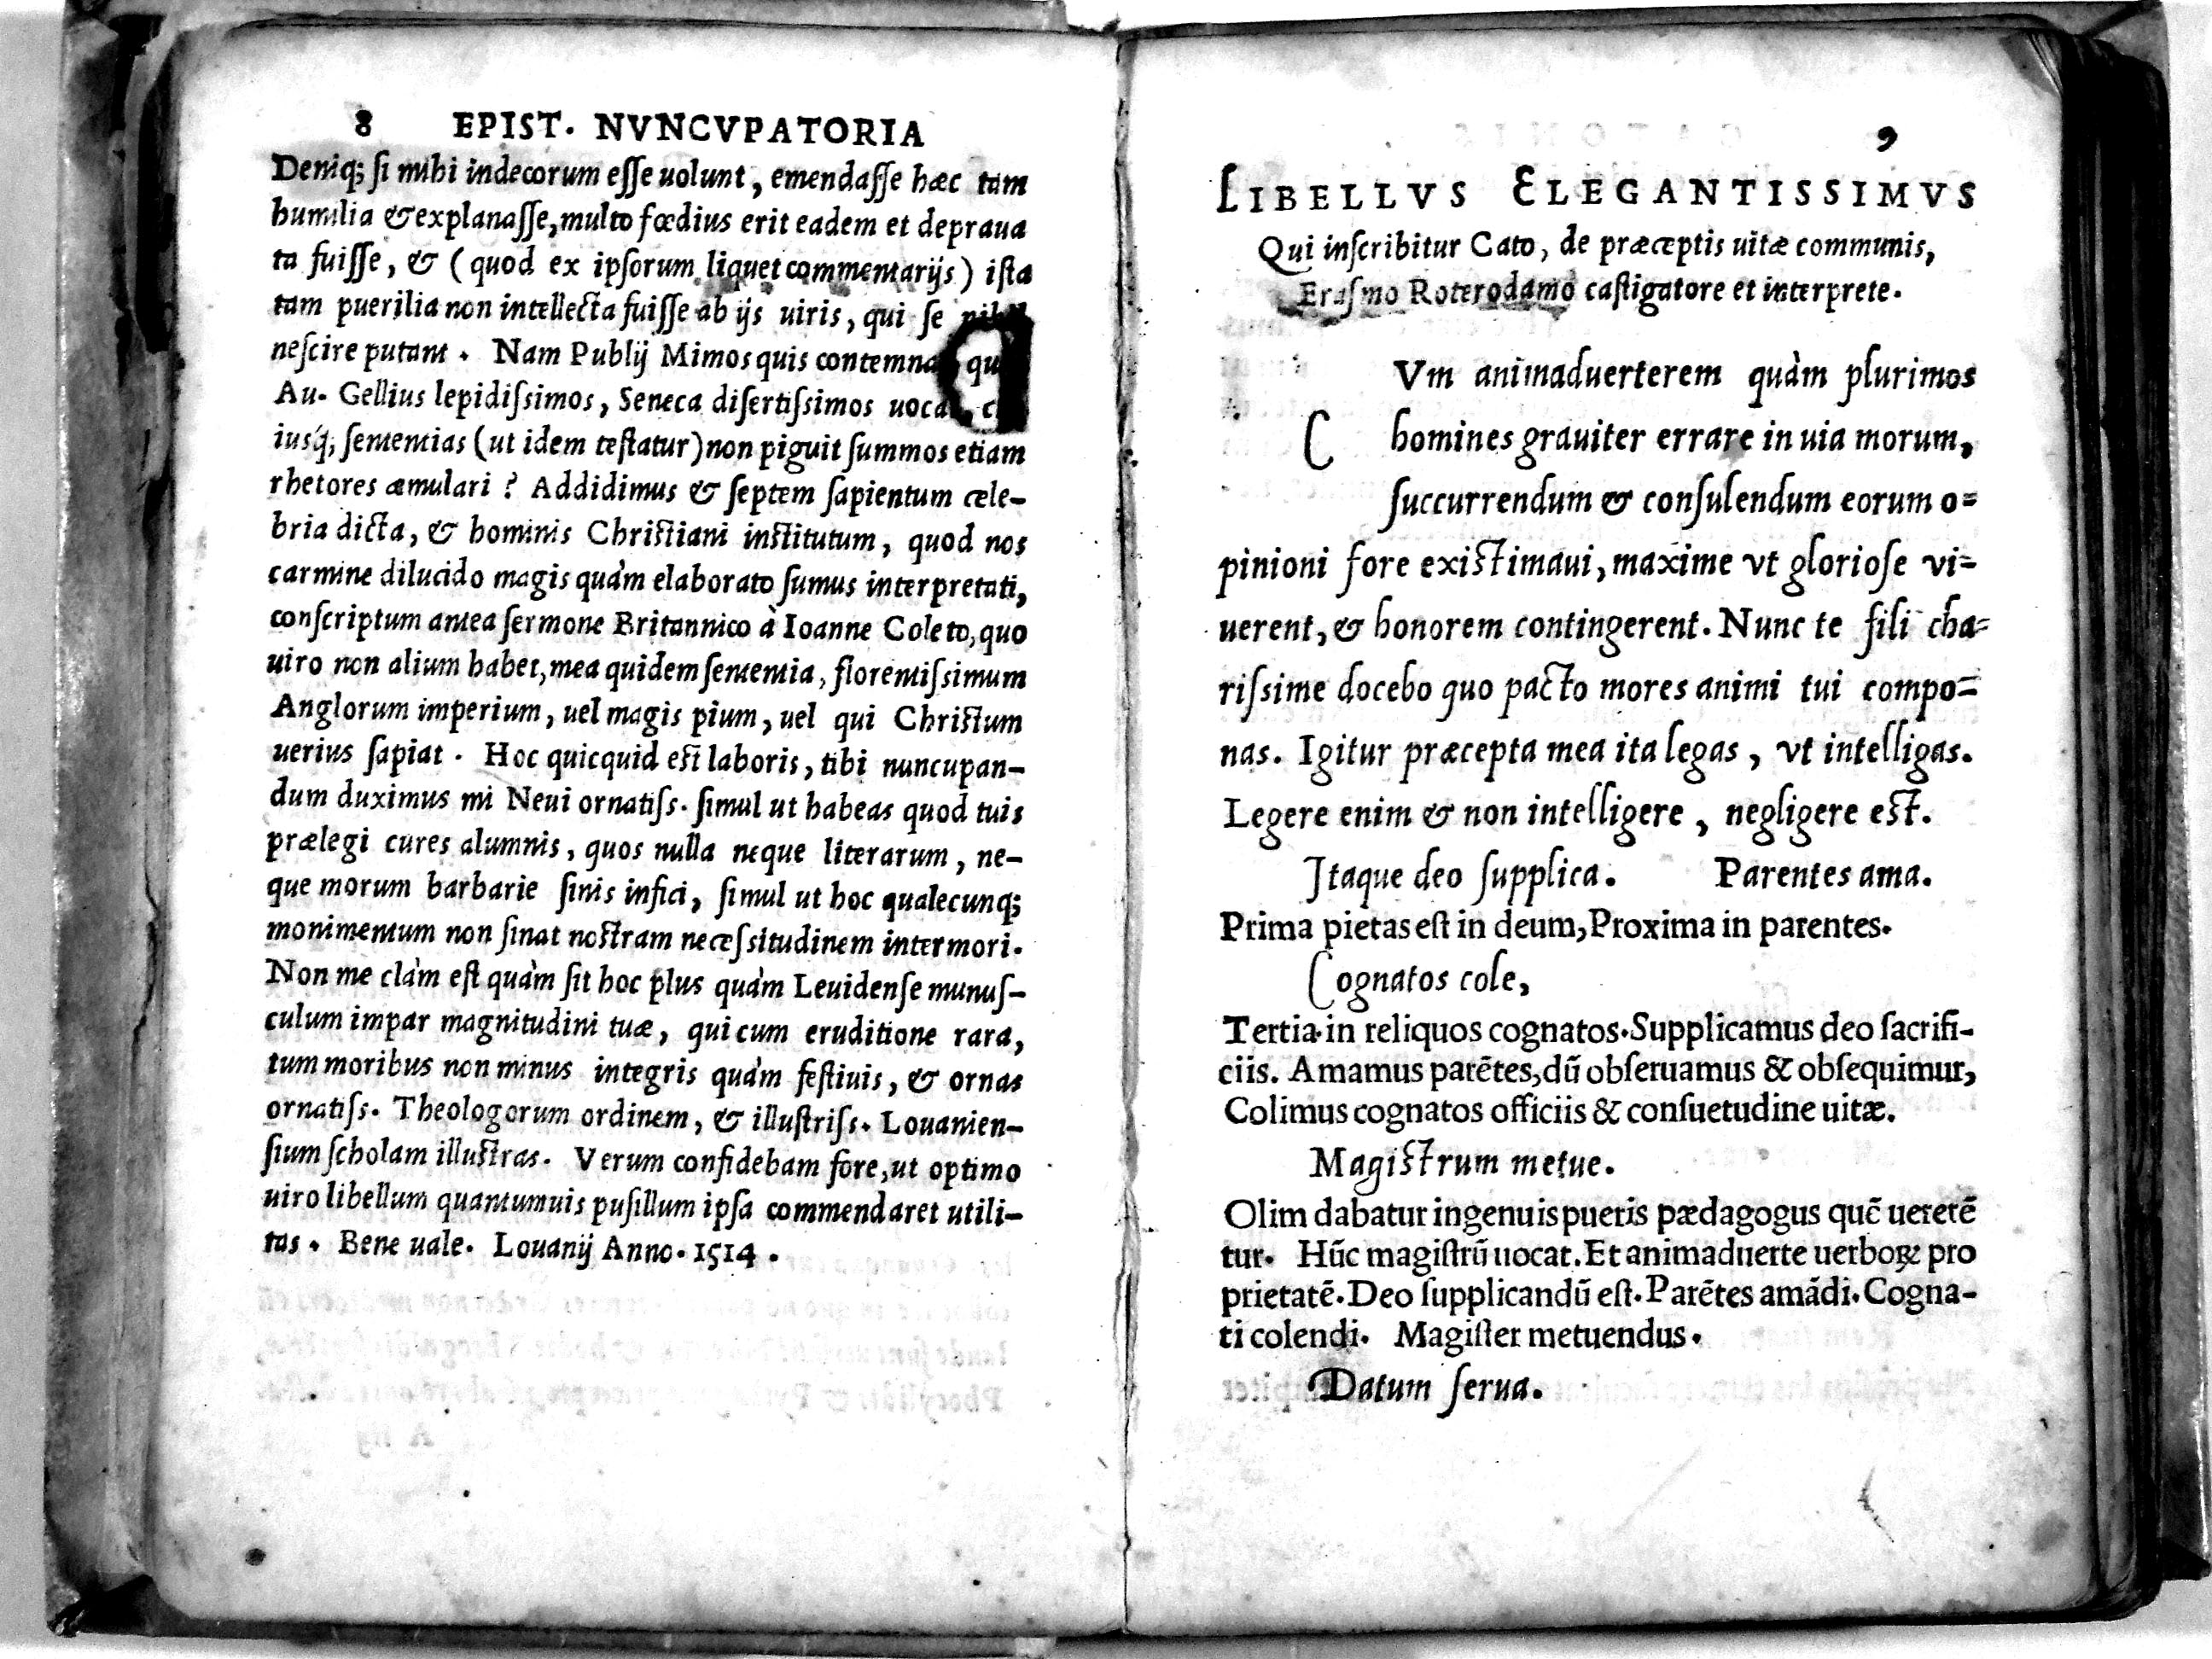 8 EPIST. NVNCVPATORIA
Deniq; ſi mihi indecorum eſſe uolunt, emendaſſe hæc tam
humilia & explanaſſe, multo fœdius erit eadem et depraua
ta fuiſſe, & (quod ex ipſorum liquet commentarijs) iſta
tam puerilia non intellecta fuiſſe ab ijs uiris, qui ſe
neſcire putant. Nam Publij Mimos quis
Au. Gellius lepidiſsimos, Seneca diſertiſsimos
iusq́; ſententias (ut idem teſtatur) non piguit ſummos etiam
rhetores æmulari? Addidimus & ſeptem ſapientum cele-
bria dicta, & hominis Chriſtiani inſtitutum, quod nos
carmine dilucido magis quàm elaborato ſumus interpretati,
conſcriptum antea ſermone Britannico à Ioanne Coleto, quo
uiro non alium habet, mea quidem ſententia, florentiſsimum
Anglorum imperium, uel magis pium, uel qui Chriſtum
uerius ſapiat. Hoc quicquid eſt laboris, tibi nuncupan-
dum duximus mi Neui ornatiſs. ſimul ut habeas quod tuis
prælegi cures alumnis, quos nulla neque literarum, ne-
que morum barbarie ſinis infici, ſimul ut hoc qualecunq;
monimentum non ſinat noſtram neceſsitudinem intermori.
Non me clàm eſt quàm ſit hoc plus quàm Leuidenſe munuſ-
culum impar magnitudini tuæ, qui cum eruditione rara,
tum moribus non minus integris quàm feſtiuis, & ornas
ornatiſs. Theologorum ordinem, & illuſtriſs. Louanien-
ſium ſcholam illuſtras. Verum confidebam fore, ut optimo
uiro libellum quantumuis puſillum ipſa commendaret utili-
tas. Bene uale. Louanij Anno. 1514.
9
LIBELLVS ELEGANTISSIMVS
Qui inſcribitur Cato, de præceptis uitæ communis,
Eraſmo Roterodamo caſtigatore et interprete.
CVm animaduerterem quàm plurimos
homines grauiter errare in uia morum,
ſuccurrendum & conſulendum eorum o=
pinioni fore exiſtimaui, maxime vt glorioſe vi=
uerent, & honorem contingerent. Nunc te fili cha=
riſsime docebo quo pacto mores animi tui compo=
nas. Igitur præcepta mea ita legas, vt intelligas.
Legere enim & non intelligere, negligere eſt.
Itaque deo ſupplica. Parentes ama.
Prima pietas eſt in deum, Proxima in parentes.
Cognatos cole,
Tertia in reliquos cognatos. Supplicamus deo ſacrifi-
ciis. Amamus parẽtes, dũ obſeruamus & obſequimur,
Colimus cognatos officiis & conſuetudine uitæ.
Magiſtrum metue.
Olim dabatur ingenuis pueris pædagogus quẽ ueretẽ
tur. Hũc magiſtrũ uocat. Et animaduerte uerboꝝ pro
prietatẽ. Deo ſupplicandũ eſt. Parẽtes amãdi. Cogna-
ti colendi. Magiſter metuendus.
Datum ſerua.